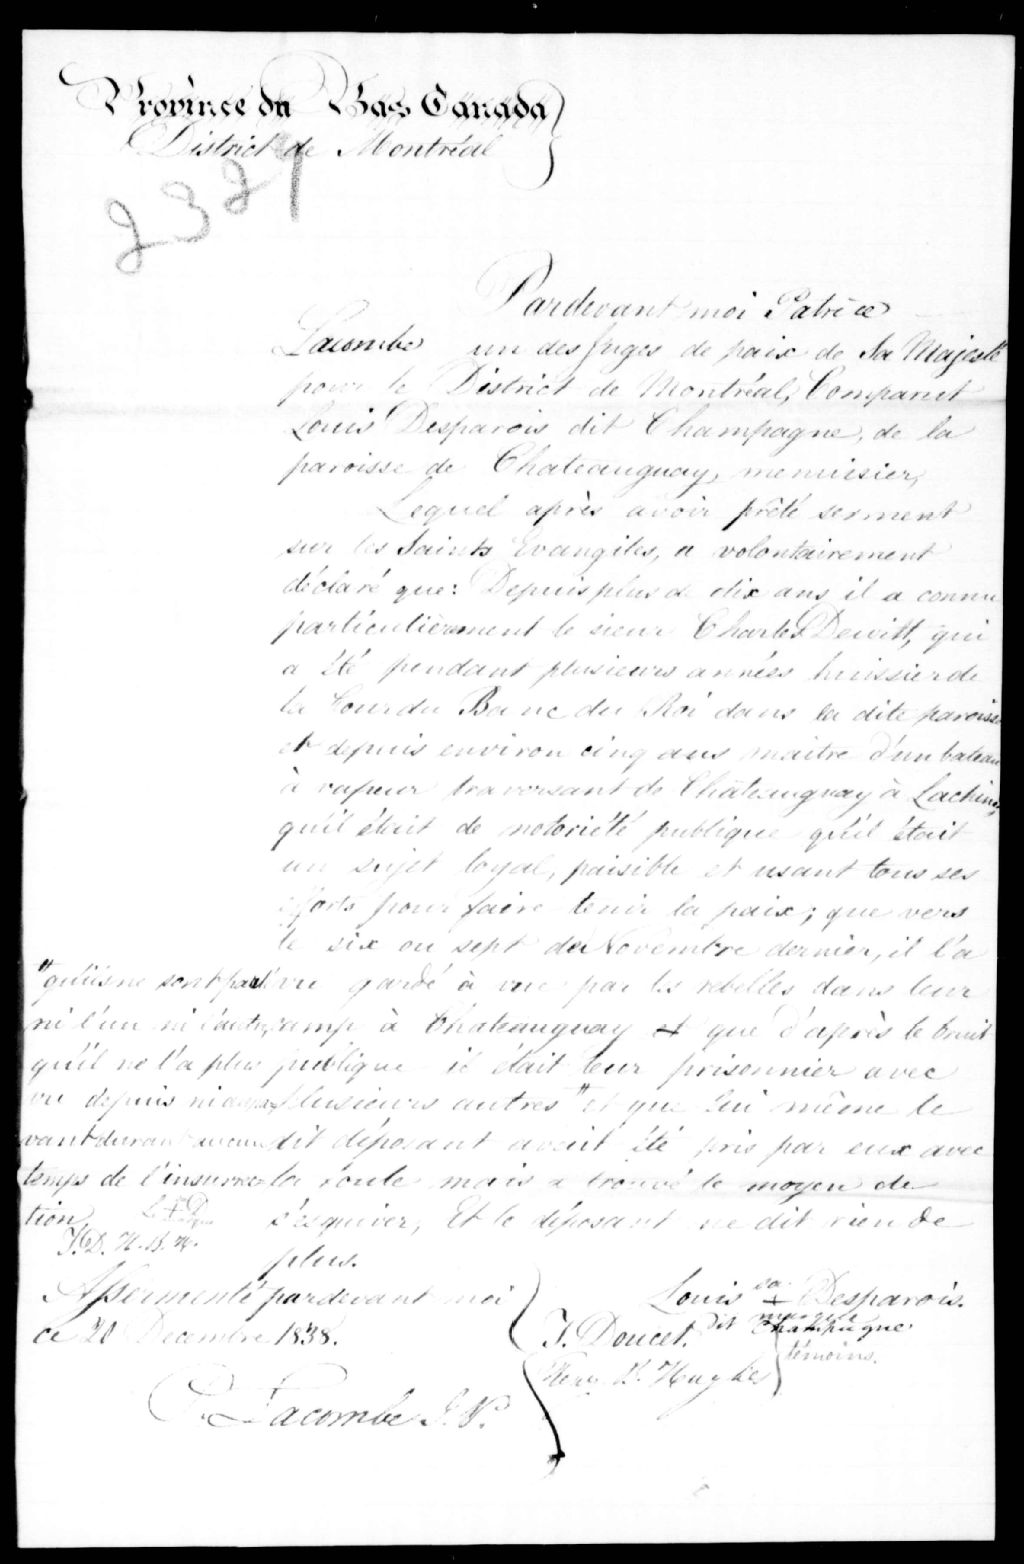 Province du Bas Canada
District de Montréal
2321
Pardevant moi Patrice
Lacombe un des Juges de paix de Sa Majesté
pour le District de Montréal, Comparut
Louis Desparois dit Champagne, de la
paroisse de Chateauguay, menuisier,
Lequel après avoir prêté serment
sur les Saints Evangiles, a volontairement
déclaré que: Depuis plus de dix ans il a connu
particulièrement le sieur Charles Dewitt, qui
a été pendant plusieurs années huissier de
la Cour du Banc du Roi dans la dite paroisse
et depuis environ cinq ans maitre d'un bateau
à vapeur traversant de Châteauguay à Lachine,
qu'il était de notoriété publique qu'il était
un sujet loyal, paisible et usant tous ses
efforts pour faire tenir la paix; que vers
le six ou sept de Novembre dernier, il l'a
vu gardé à vue par les rebelles dans leur
camp à Chateauguay et que d'après le bruit
publique il était leur prisonnier avec
plusieurs autres " et que lui même le
dit déposant avait été pris par eux avec
la foule mais a trouvé le moyen de
s'esquiver, Et le déposant ne dit rien de
plus.
" qu'ils ne sont par
ni l'un ni l'autre
qu'il ne l'a plus
vu depuis ni aupa
vant durant aucun
temps de l'insurrec
tion
J.D. H.B.H.
Assermenté pardevant moi
ce 20 Decembre 1838.
P. Lacombe J.P.
Louis sa x marque Desparois.
dit Champagne
J. Doucet
Henry B. Hughes
témoins.